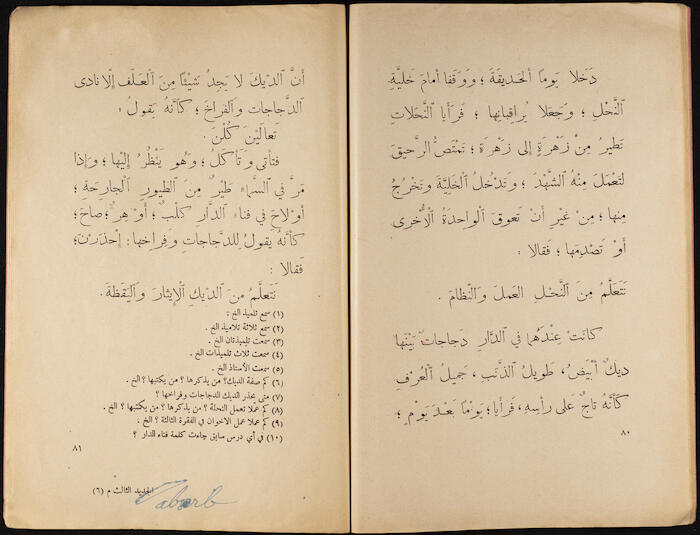 دَخَلا يَومًا ٱلْحَديقَةَ ؛ وَوَقَفا أَمامَ خَلِيَّةِ
ٱلنَّحْلِ ؛ وَجَعَلا يُراقِبانِها ؛ فَرَأَيا ٱلنَّحَلاتِ
تَطيرُ مِنْ زَهْرَةٍ إِلى زَهْرَة ؛ تَمْتَصُّ ٱلرَّحيقَ
لِتَعْمَلَ مِنْهُ ٱلشَّهْدَ ؛ وَتَدْخُلُ ٱلْخَلِيَّةَ وَتَخْرُجُ
مِنها ؛ مِنْ غَيْرِ أَنْ تَعوقَ ٱلْواحِدَةُ ٱلْأُخْرى
أَوْ تَصْدِمَها ؛ فَقالا :
نَتَعَلَّمُ مِنَ ٱلنَّحْلِ ٱلْعَمَلَ وَٱلنِّظامَ .
كانَتْ عِنْدَهُما في ٱلدَّارِ دَجاجاتٌ بَيْنَها
ديكٌ أَبْيَضُ، طَويلُ ٱلذَّنَبِ، جَميلُ ٱلْعُرْفِ
كَأَنَّهُ تاجٌ عَلى رَأْسِهِ، فَرَأَيا ؛ يَوْمًا بَعْدَ يَوْمٍ ؛
٨٠
أَنَّ ٱلدّيكَ لا يَجِدُ شَيْئًا مِنَ ٱلْعَلَفِ إِلّا نادى
ٱلدَّجاجاتِ وَٱلْفِراخَ ؛ كَأَنَّهُ يَقولُ :
تَعالَيْنَ كُلْنَ .
فَتَأتي وَتَأْكُلُ ؛ وَهُوَ يَنْظُرُ إِلَيْها ؛ وَإِذا
مَرَّ في ٱلسَّماءِ طَيْرٌ مِنَ ٱلطُّيورِ ٱلْجارِحَةِ ؛
أَوْ لاحَ في فِناءِ ٱلدّارِ كَلْبٌ ؛ أَوْ هِرٌّ ؛ صاحَ ؛
كَأَنَّهُ يَقولُ لِلدَّجاجاتِ وَفِراخِها : إِحْذَرْنَ ؛
فَقالا :
نَتَعَلَّمُ مِنَ ٱلدّيكِ ٱلْإِيثارَ وَٱلْيَقَظَةَ .
(١) سمع تلميذ الخ .
(٢) سمع ثلاثة تلاميذ الخ .
(٣) سمعت تلميذتان الخ .
(٤) سمعت ثلاث تلميذات الخ .
(٥) سمعت الأستاذ الخ .
(٦) كم صفة الديك؟ من يذكرها ؟ من يكتبها ؟ الخ .
(٧) متى يحذر الديك الدجاجات وفراخها ؟
(٨) كم عملا تعمل النحلة ؟ من يذكرها ؟ من يكتبها ؟ الخ .
(٩) كم عملا عمل الاخوان في الفقرة الثالثة ؟ الخ .
(١٠) في أي درس سابق جاءت كلمة فناء للدار ؟
٨١
الجديد الثالث م (٦)